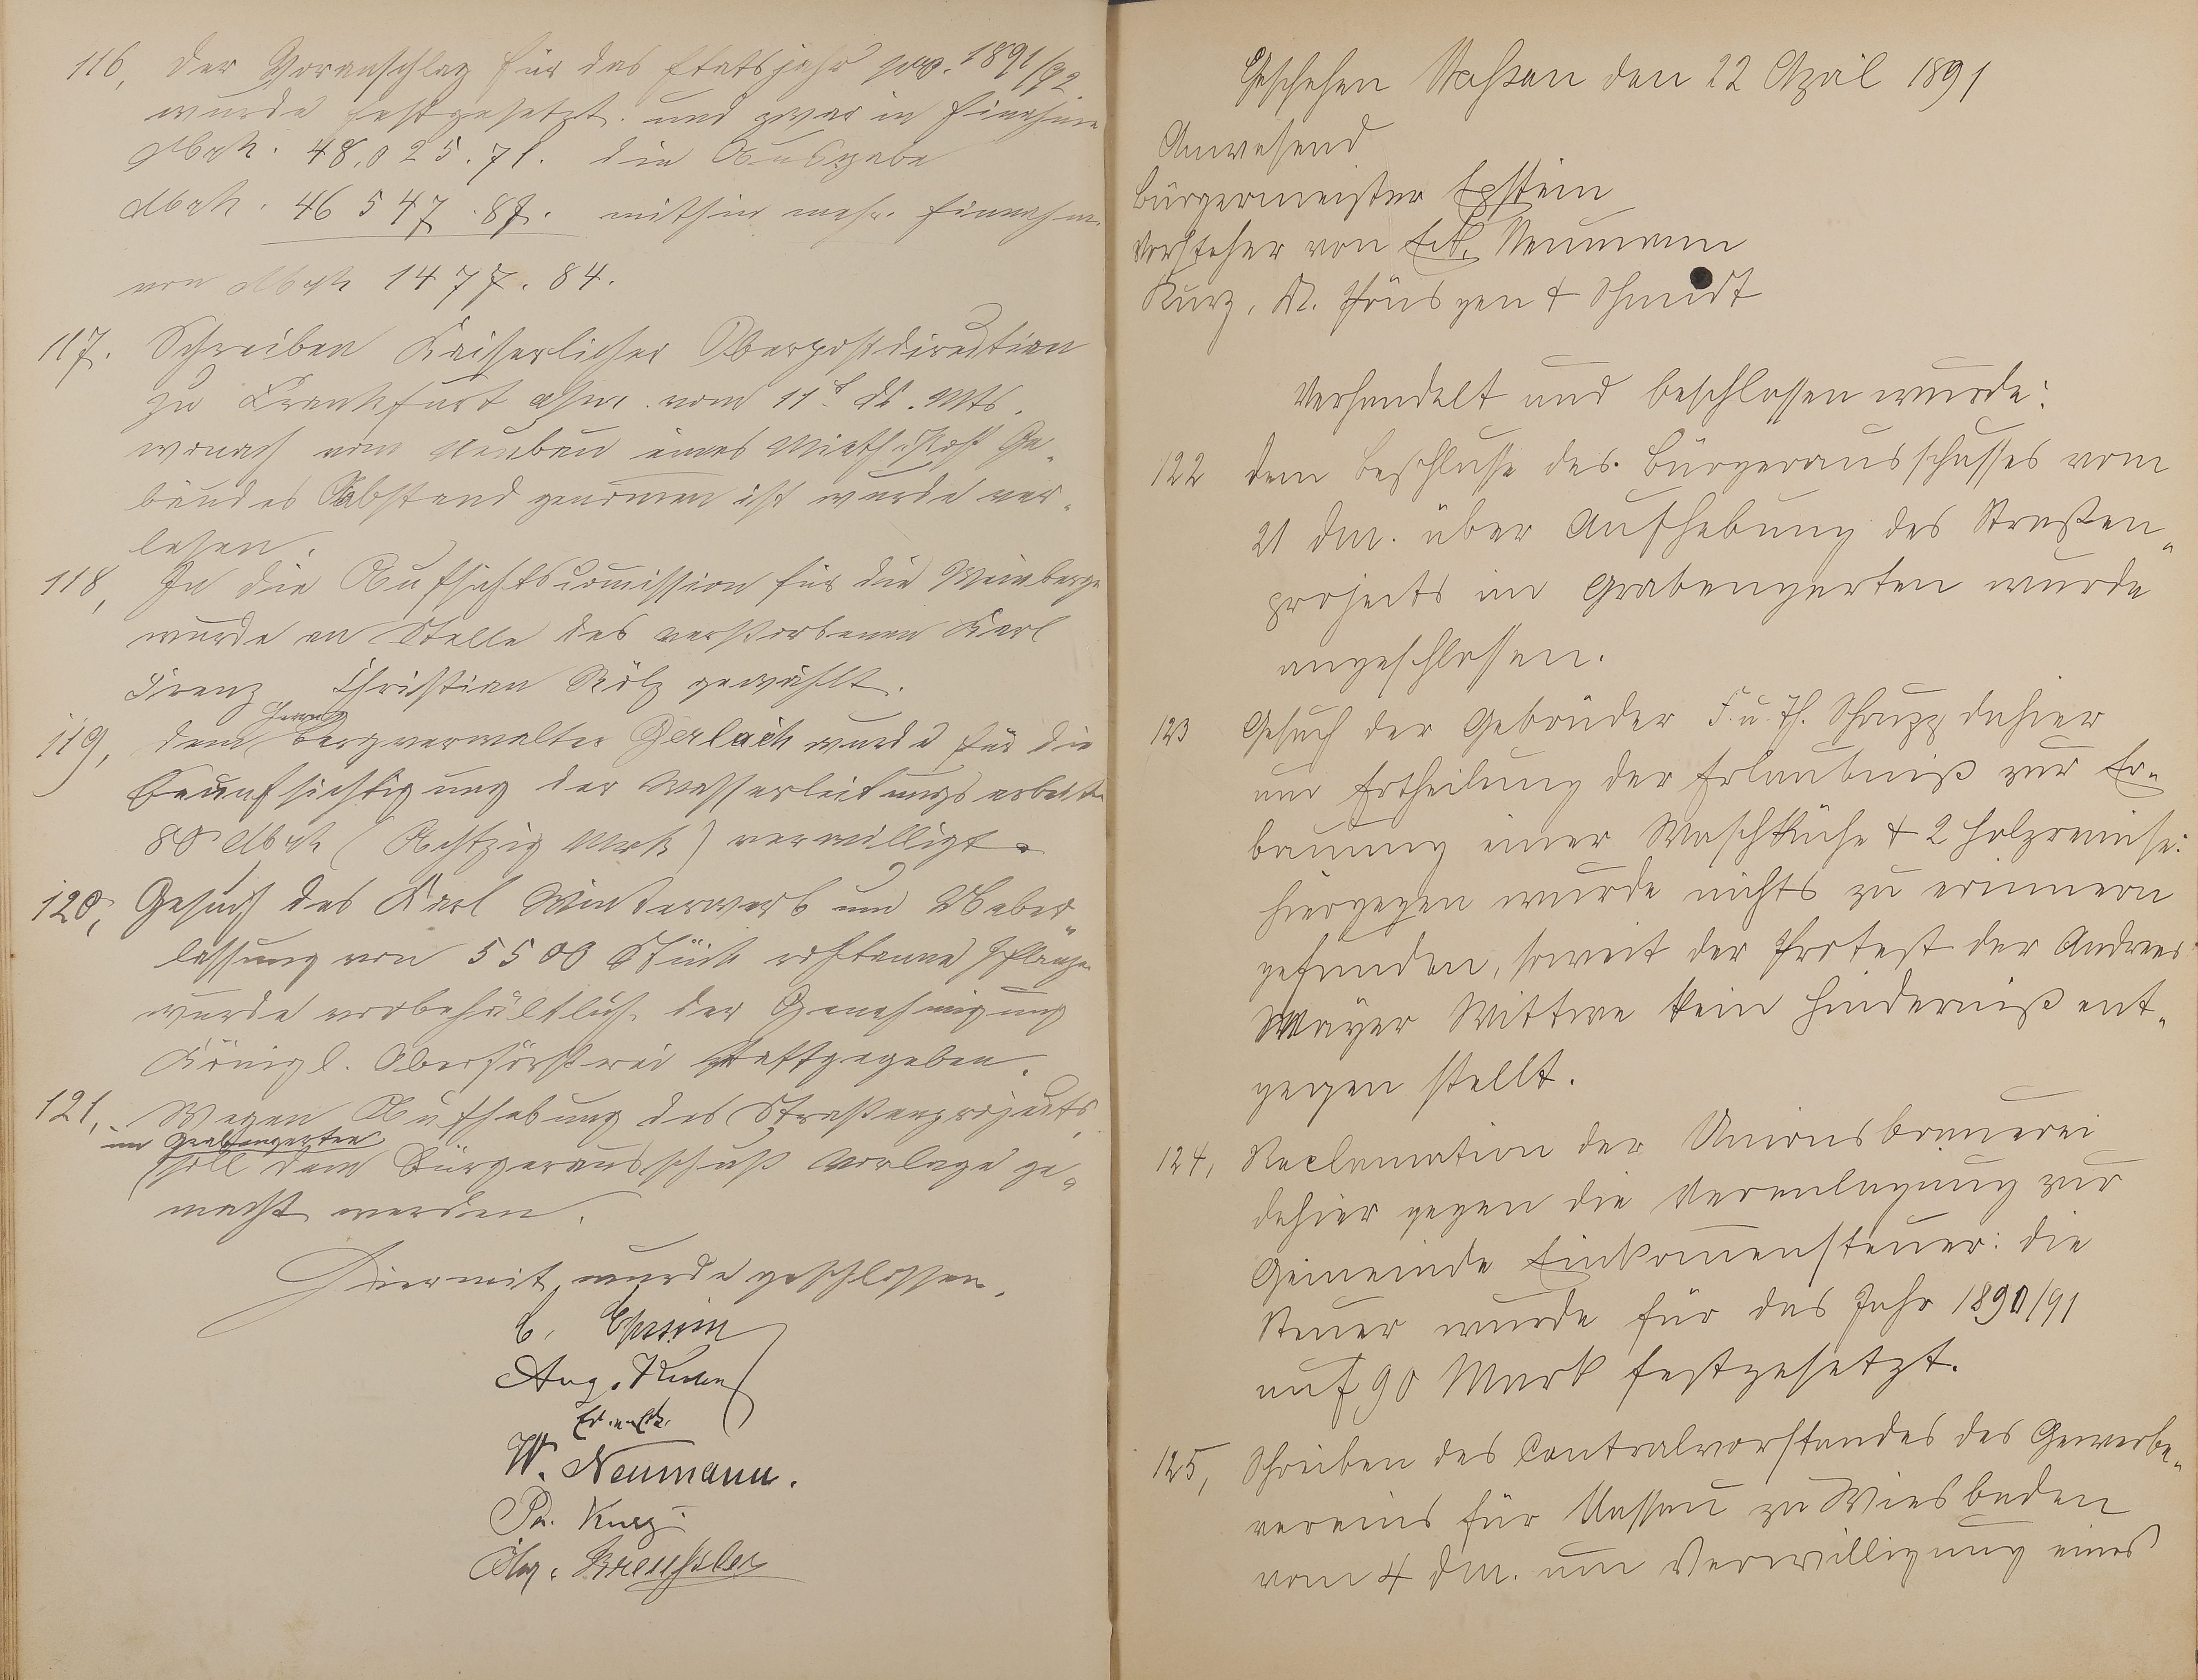 116, Der Voranschlag für das Etatsjahr pro. 1891/92
wurde festgesetzt. und zwar in Einahme
Mark. 48,025.71. die Ausgabe
Mark. 46 547.87. mithin mehr. Einnahme
von Mark 1477.84.
117. Schreiben Kaiserlicher Oberpostdirection
zu Frankfurt a/m. vom 11t ds. Mts.
wonach vom Neubau eines Mieth Post Ge„
bäudes Abstand genomen ist wurde ver„
lesen.
118, In die Aufsichtscomission für die Weinberge
wurde an Stelle des verstorbenen Karl
Frenz Christian Rölz gewählt.
Herrn
119, dem Bergverwalter Gerlach wurde für die
Beaufsichtigung der Wasserleitungsarbeiten
80 Mark (Achtzig Mark) verwilligt.
120, Gesuch des Karl Winterwerb um Ueber„
lassung von 5500 Stück rothtanne Pflanzen
wurde vorbehältlich der Genehmigung
Königl. Oberförsterei stattgegeben.
121, Wegen Aufhebung des Straßenprojects,
im Grabengarten
soll dem Bürgerausschuß Vorlage ge„
macht werden.
Hiermit wurde geschlossen.
C. Epstein
Aug.
W. Neumann.
Ph. Kurz
Chr.
Geschehen den 22 April 1891
Anwesend
Bürgermeister Epstein
Vorsteher von Eck, Neumann
Kurz, A. Pönsgen & Schmidt
Verhandelt und beschlossen wurde:
122 dem Beschlusse des Bürgerausschusses vom
21 dM. über Aufhebung des Straßen„
projects im Grabengarten wurde
angeschlossen.
123 Gesuch der Gebrüder F. u. Th. Schupp dahier
um Ertheilung der Erlaubniß zur Er„
bauung einer Waschküche & 2 Holzremise:
hiergegen wurde nichts zu erinnern
gefunden, soweit der Protest der Andreas
Mayer Wittwe kein Hinderniß ent„
gegen stellt.
124, Reclamation der Unionsbrauerei
dahier gegen die Veranlagung zur
Gemeinde Einkomensteuer: die
Steuer wurde für das Jahr 1890/91
auf 90 Mark festgesetzt.
125, Schreiben des Centralvorstandes des Gewerbe„
vereins für Nassau zu Wiesbaden
vom 4 dM. um Verwilligung eines